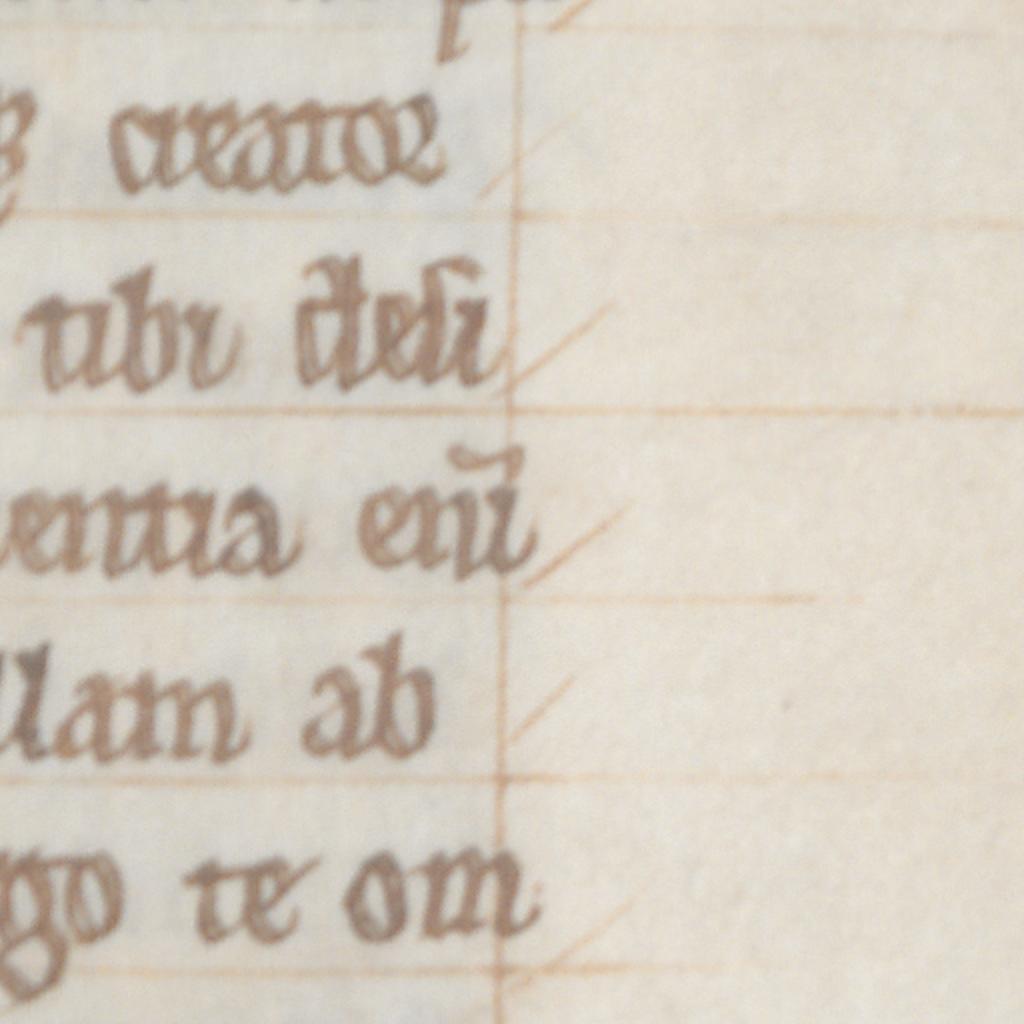 creator
tibi desi
entia eniū
llam ab
go te om